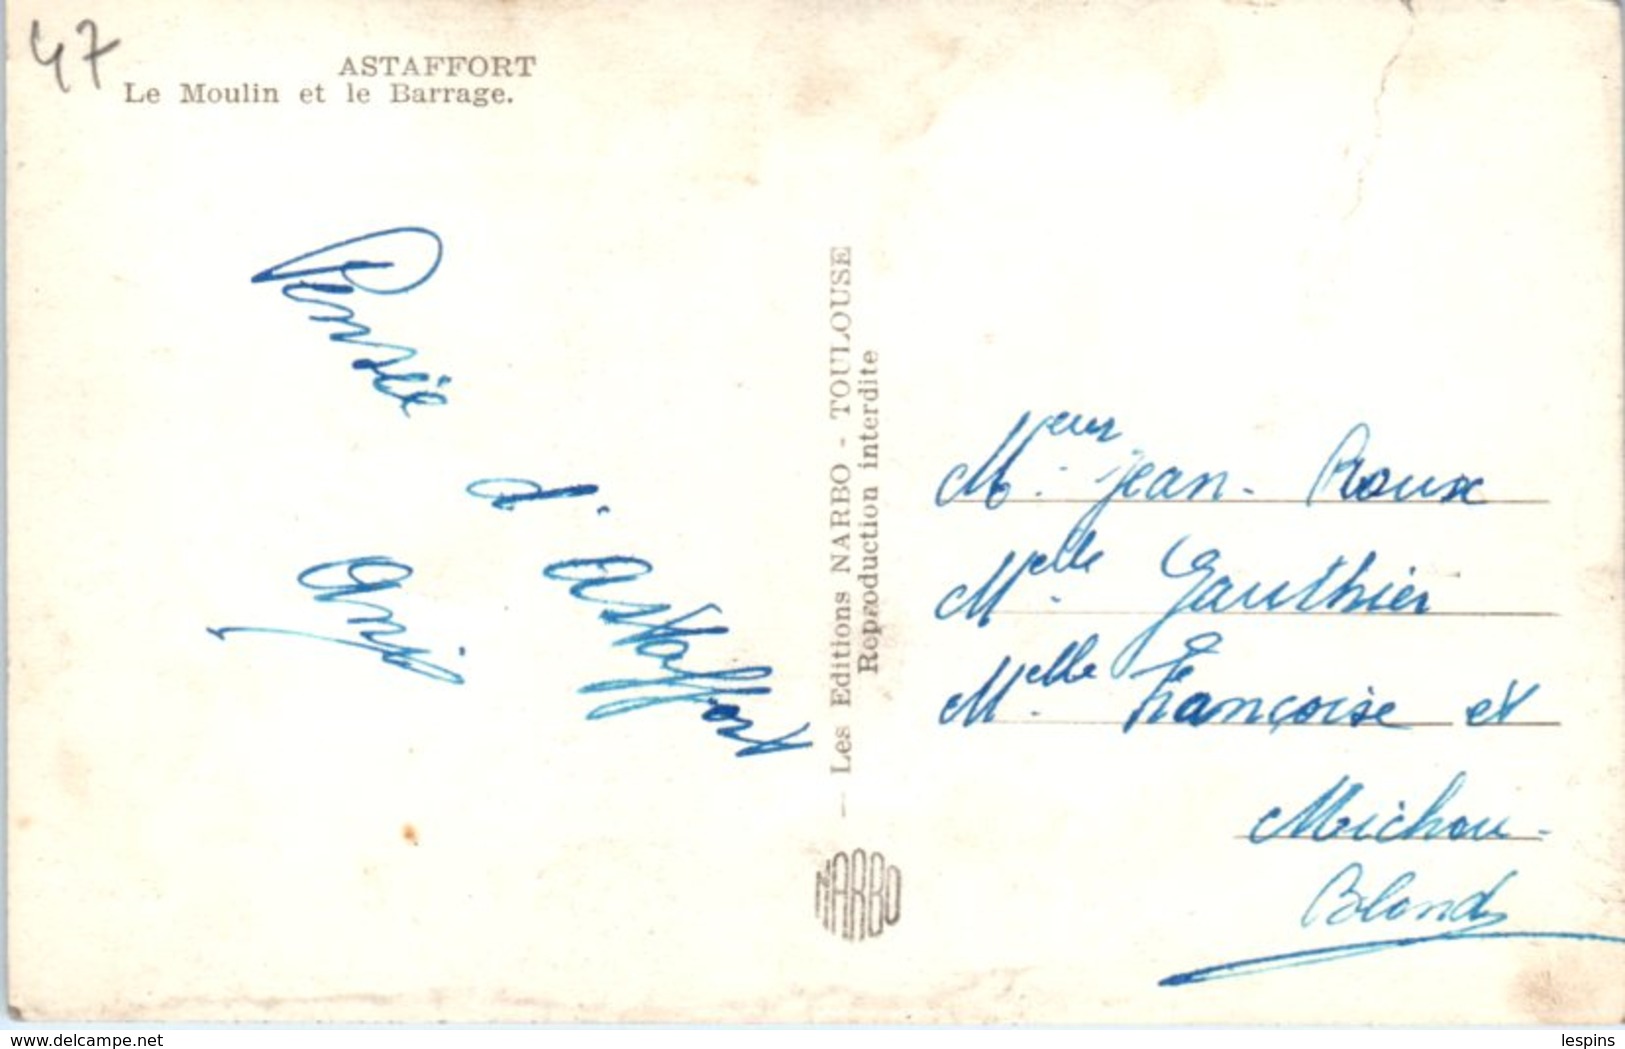 47
ASTAFFORT
Le Moulin et le Barrage.
Pensée
d'Astaffort
— Les Editions NARBO - TOULOUSE
Reproduction interdite
NARBO
Meur. Jean. Roux
Melle. Gauthier
Melle. Françoise et
Michou.
Blond
www.delcampe.net
lespins